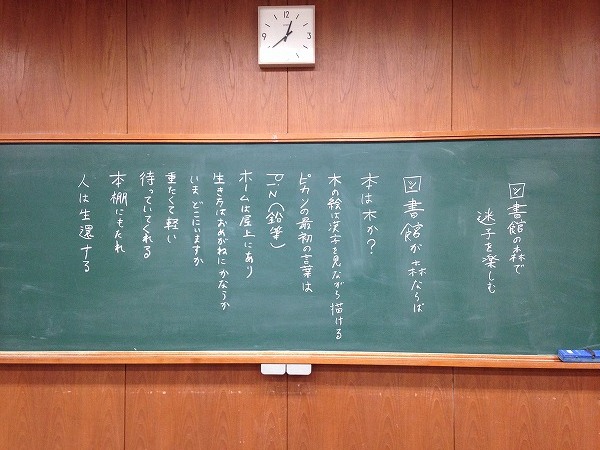 図書館の森で
迷子を楽しむ
図書館が森ならば
本は木か?
木の絵は漢字を見ながら描ける
ピカンの最初の言葉は
(鉛筆)
ホームは屋上にあり
生き方はおめがねにかなうか
いまどこにいますか
重たくて軽い
待っていてくれる
本棚にもたれ
人は生還する
12
3
6
9